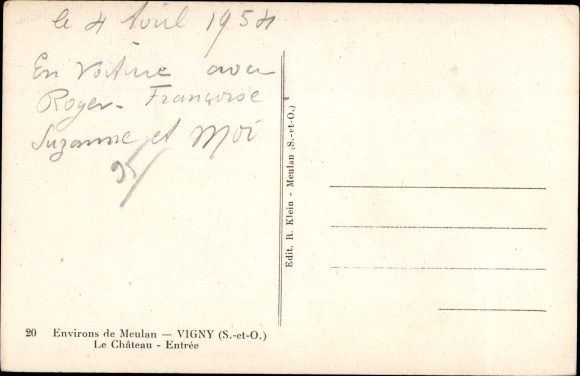 le 4 Avril 1954
En Voiture avec
Roger - Françoise
Suzanne et Moi
Edit. R. Klein - Meulan (S.-et-O.)
20 Environs de Meulan — VIGNY (S.-et-O.)
Le Château - Entrée